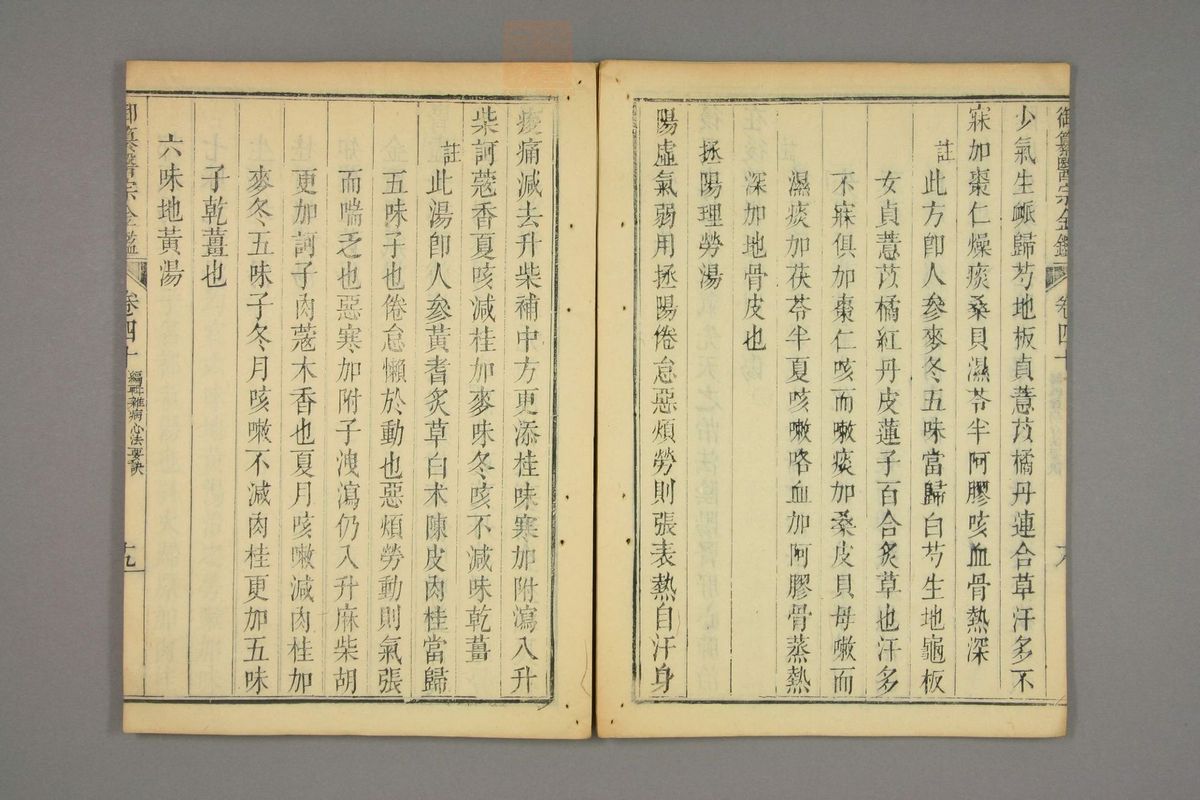 御纂醫宗金鑑 卷四十
少氣生衇歸芍地板貞薏苡橘丹連合草汗多不
寐加棗仁燥痰桑貝濕苓半阿膠咳血骨熱深
註 此方卽人參麥冬五味當歸白芍生地龜板
女貞薏苡橘紅丹皮蓮子百合炙草也汗多
不寐俱加棗仁咳而嗽痰加桑皮貝母嗽而
濕痰加茯苓半夏咳嗽咯血加阿膠骨蒸熱
深加地骨皮也
拯陽理勞湯
陽虛氣弱用拯陽倦怠惡煩勞則張表熱自汗身
痠痛減去升柴補中方更添桂味寒加附瀉入升
柴訶蔻香夏咳減桂加麥味冬咳不減味乾薑
註 此湯卽人參黃耆炙草白朮陳皮肉桂當歸
五味子也倦怠懶於動也惡煩勞動則氣張
而喘乏也惡寒加附子洩瀉仍入升麻柴胡
更加訶子肉蔻木香也夏月咳嗽減肉桂加
麥冬五味子冬月咳嗽不減肉桂更加五味
子乾薑也
六味地黃湯
御纂醫宗金鑑 卷四十 編輯雜病心法要訣 九